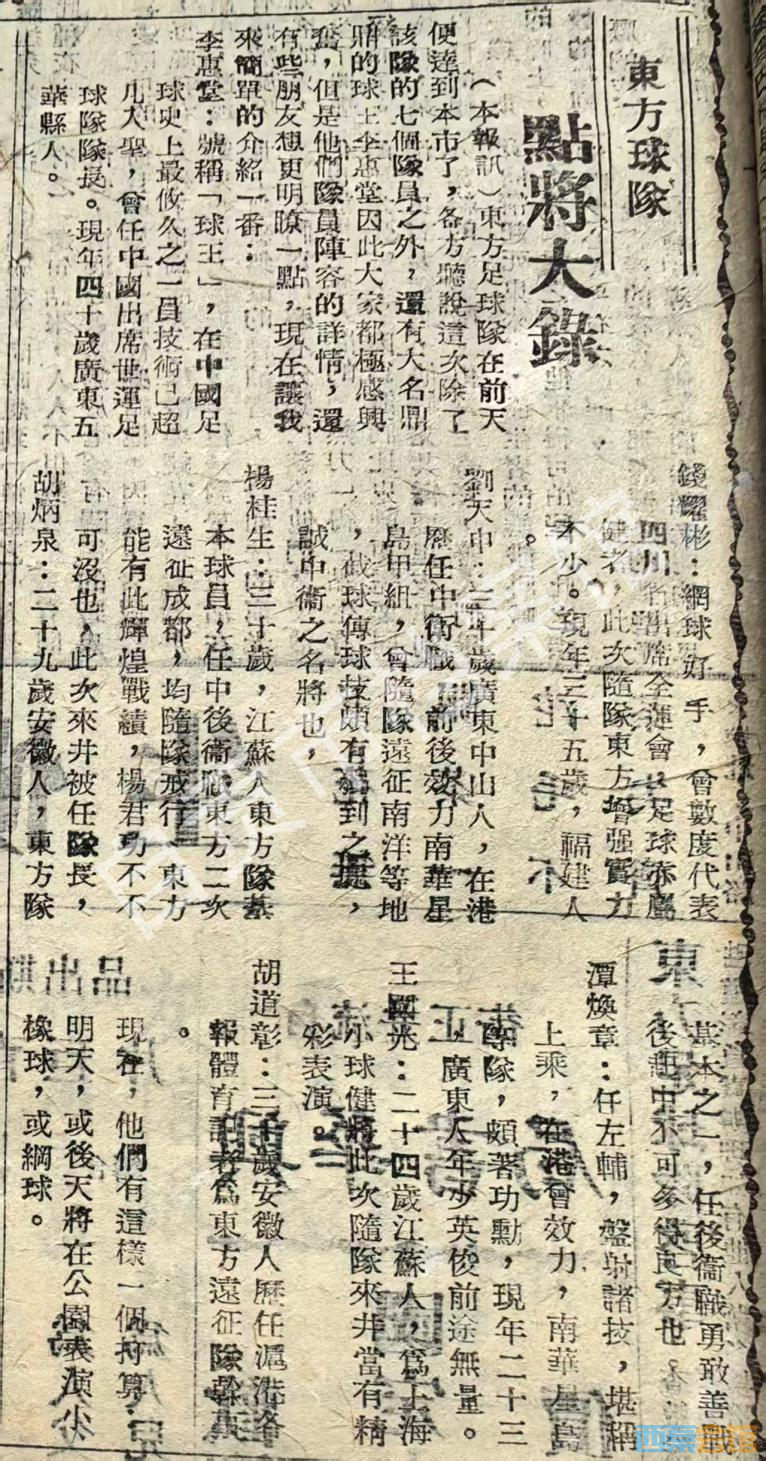 東方球隊
點將大錄
（本報訊）東方足球隊在前天
便達到本市了，各方聽說這次除了
該隊的七個隊員之外，還有大名鼎
鼎的球王李惠堂因此大家都極感興
奮，但是他們隊員陣容的詳情，還
有些朋友想更明瞭一點，現在讓我
來簡單的介紹一番：
李惠堂：號稱「球王」，在中國足
球史上最攸久之一員技術已超
凡入聖，會任中國出席世運足
球隊隊長。現年四十歲廣東五
華縣人。
錢耀彬：網球好手，會數度代表
四川省出席全運會，足球亦屬
健者，此次隨隊東方增强實力
不少。現年三十五歲，福建人
。
劉天申：三十歲廣東中山人，在港
歷任中衛職，前後效力南華星
島甲組，會隨隊遠征南洋等地
，截球傳球技頗有獨到之處，
誠中衛之名將也，
楊桂生：三十歲，江蘇人東方隊基
本球員，任中後衛職東方二次
遠征成都，均隨隊戒行，東方
能有此輝煌戰績，楊君功不不
可沒也，此次來井被任隊長，
胡炳泉：二十九歲安徽人，東方隊
基本之一，任後衛職勇敢善戰
後起中不可多得良才也
潭煥章：任左輔，盤射諸技，堪稱
上乘，在港會效力，南華星島
隊，頗著功勳，現年二十三
，廣東人年少英俊前途無量。
王國光：二十四歲江蘇人，爲上海
小球健將此次隨隊來井當有精
彩表演。
胡道彰：三十歲安徽人歷任滬港各
報體育記者爲東方遠征隊幹事
。
現在，他們有這樣一個打算：
明天，或後天將在公園表演小
橡球，或網球。